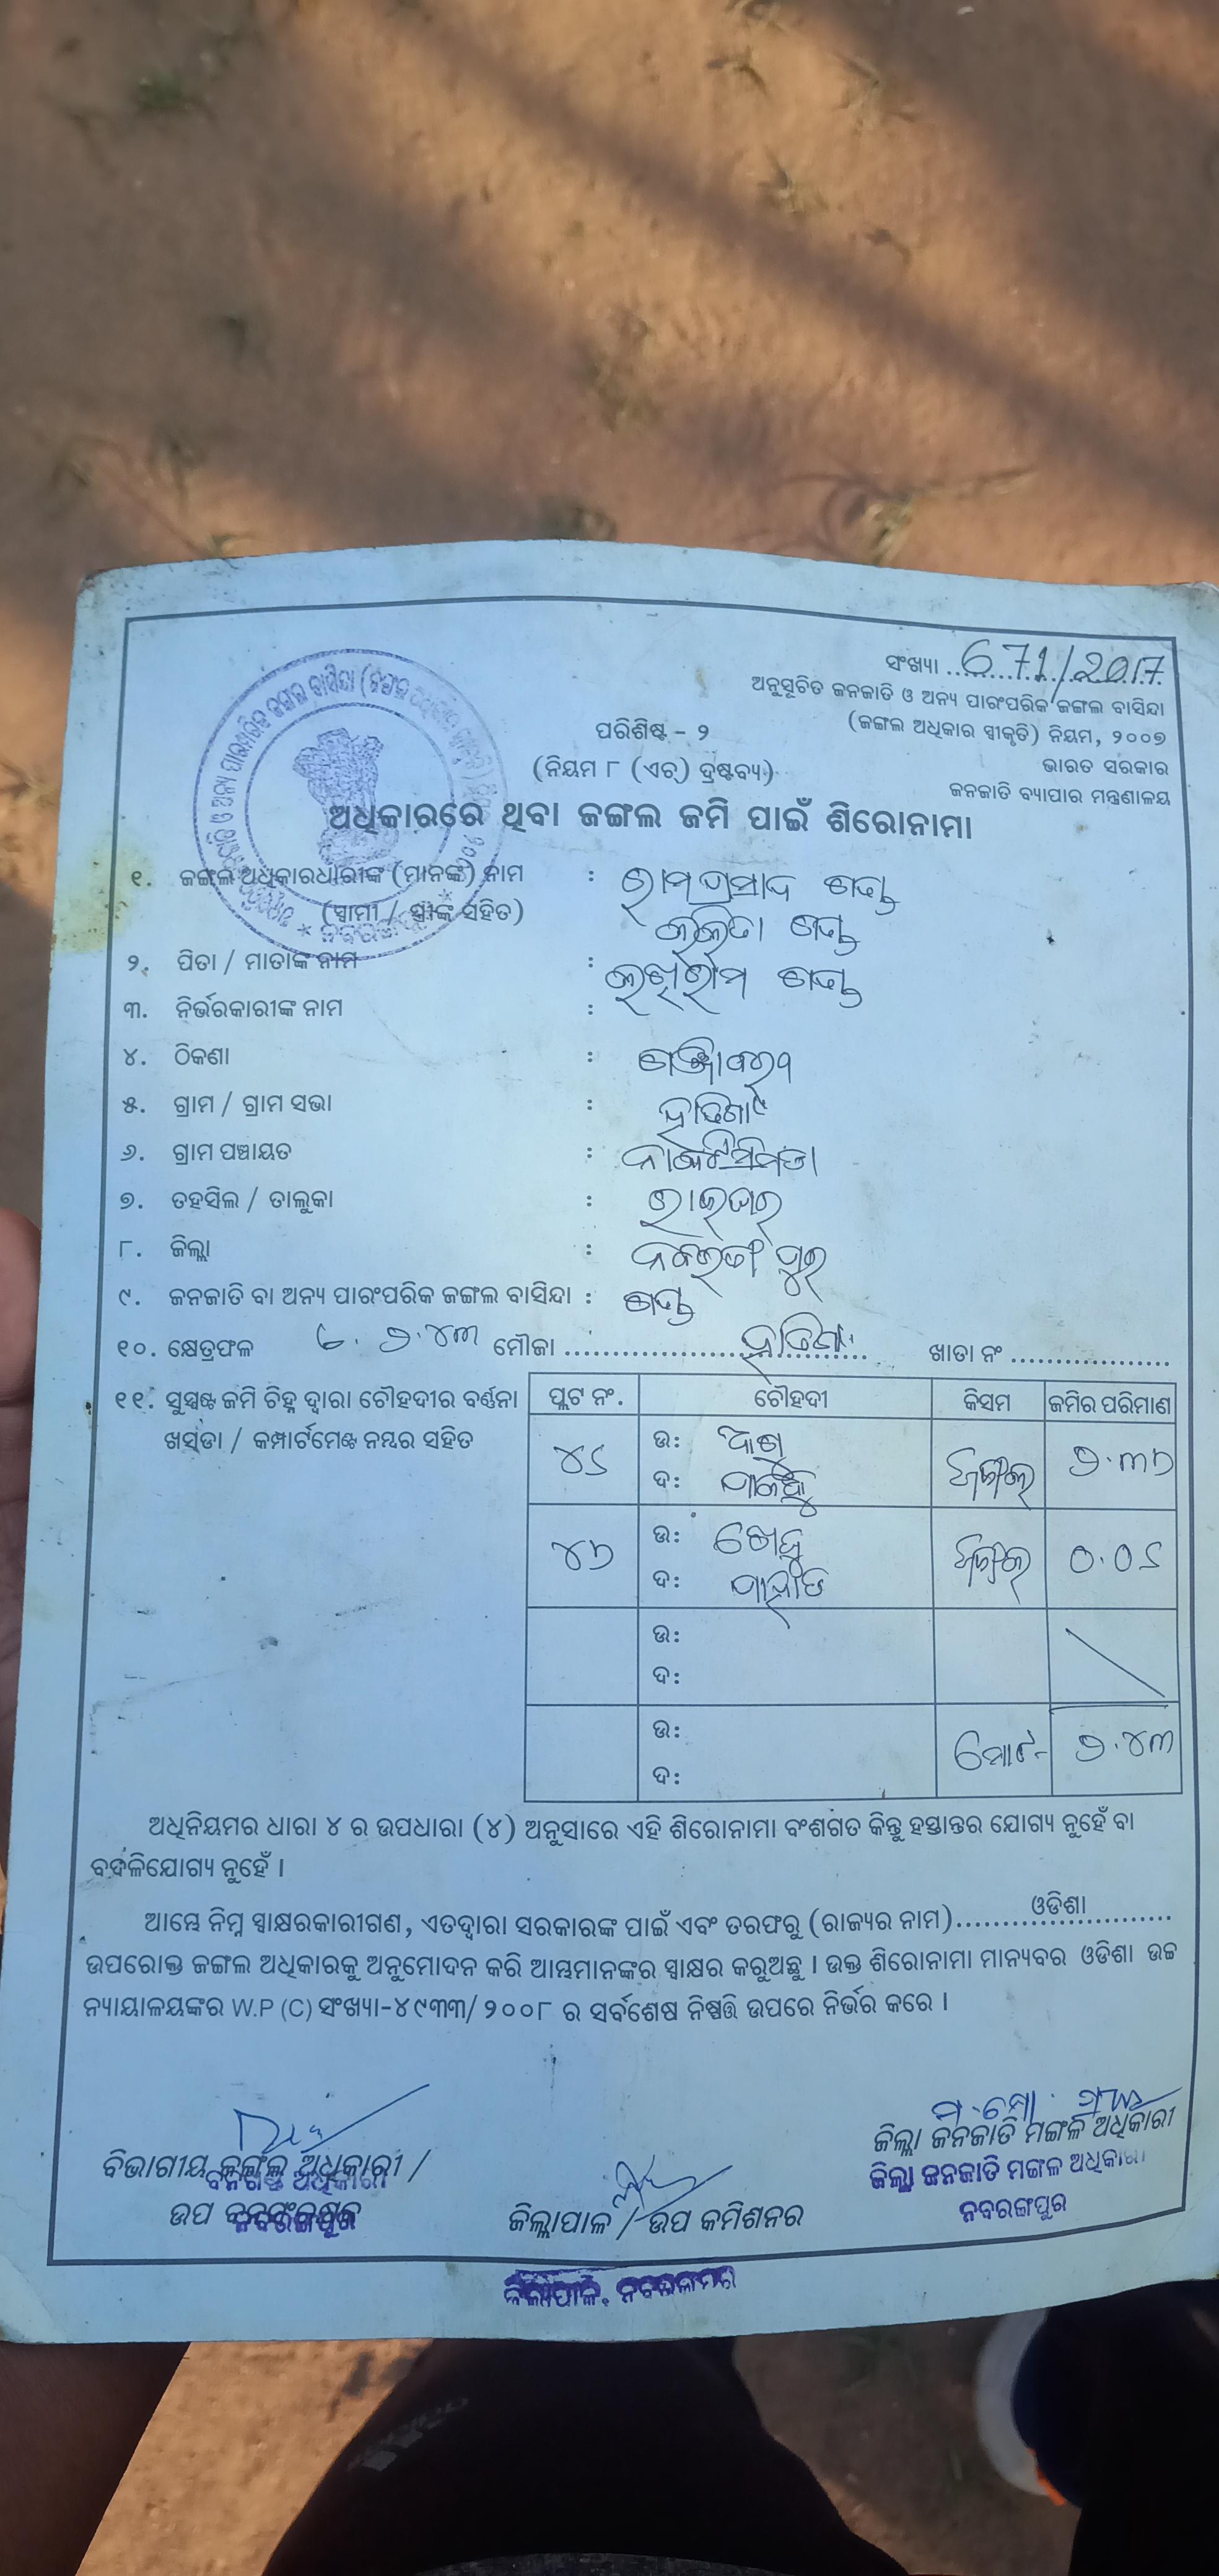 ସଂଖ୍ୟା 671/2017
ଅନୁସୂଚିତ ଜନଜାତି ଓ ଅନ୍ୟ ପାରଂପରିକ ଜଙ୍ଗଲ ବାସିନ୍ଦା
(ଜଙ୍ଗଲ ଅଧିକାର ସ୍ୱୀକୃତି) ନିୟମ, ୨୦୦୭
ଭାରତ ସରକାର
ଜନକାତି ବ୍ୟାପାର ମନ୍ତ୍ରଣାଳୟ
ପରିଶିଷ୍ଟ - ୨
(ନିୟମ ୮ (ଏଚ୍) ଦ୍ରଷ୍ଟବ୍ୟ)
ଅଧିକାରରେ ଥିବା ଜଙ୍ଗଲ ଜମି ପାଇଁ ଶିରୋନାମା
୧. ଜଙ୍ଗଲ ଅଧିକାରଧାରୀଙ୍କ (ମାନଙ୍କ) ନାମ : ରାମପ୍ରସାଦ ଗଣ୍ଡ
(ସ୍ୱାମୀ / ସ୍ତ୍ରୀଙ୍କ ସହିତ) ଲଳିତା ଗଣ୍ଡ
୨. ପିତା / ମାତାଙ୍କ ନାମ : ଲଖିରାମ ଗଣ୍ଡ
୩. ନିର୍ଭରକାରୀଙ୍କ ନାମ :
୪. ଠିକଣା :
୫. ଗ୍ରାମ / ଗ୍ରାମ ସଭା :
୬. ଗ୍ରାମ ପଞ୍ଚାୟତ :
୭. ତହସିଲ / ତାଲୁକା : ରାଇଘର
୮. ଜିଲ୍ଲା : ନବରଙ୍ଗପୁର
୯. ଜନଜାତି ବା ଅନ୍ୟ ପାରଂପରିକ ଜଙ୍ଗଲ ବାସିନ୍ଦା : ଗଣ୍ଡ
୧୦. କ୍ଷେତ୍ରଫଳ ୨.୪୩ ମୌଜା ଖାତା ନଂ
୧୧. ସୁସ୍ପଷ୍ଟ ଜମି ଚିହ୍ନ ଦ୍ୱାରା ଚୌହଦୀର ବର୍ଣ୍ଣନା
ଖସଡା / କମ୍ପାର୍ଟମେଣ୍ଟ ନମ୍ବର ସହିତ
ପ୍ଲଟ ନଂ. ଚୌହଦୀ କିସମ ଜମିର ପରିମାଣ
୪୫ ଉ:
ଦ:
ଉ:
ଦ:
ଉ:
ଦ:
ଉ: ମୋଟ- ୨.୪୩
ଦ:
ଅଧିନିୟମର ଧାରା ୪ ର ଉପଧାରା (୪) ଅନୁସାରେ ଏହି ଶିରୋନାମା ବଂଶଗତ କିନ୍ତୁ ହସ୍ତାନ୍ତର ଯୋଗ୍ୟ ନୁହେଁ ବା
ବଦଳିଯୋଗ୍ୟ ନୁହେଁ ।
ଆମ୍ଭେ ନିମ୍ନ ସ୍ୱାକ୍ଷରକାରୀଗଣ, ଏତଦ୍ୱାରା ସରକାରଙ୍କ ପାଇଁ ଏବଂ ତରଫରୁ (ରାଜ୍ୟର ନାମ) ଓଡିଶା
ଉପରୋକ୍ତ ଜଙ୍ଗଲ ଅଧିକାରକୁ ଅନୁମୋଦନ କରି ଆମ୍ଭମାନଙ୍କର ସ୍ୱାକ୍ଷର କରୁଅଛୁ । ଉକ୍ତ ଶିରୋନାମା ମାନ୍ୟବର ଓଡିଶା ଉଚ୍ଚ
ନ୍ୟାୟାଳୟଙ୍କର W.P (C) ସଂଖ୍ୟା-୪୯୩୩/୨୦୦୮ ର ସର୍ବଶେଷ ନିଷ୍ପତ୍ତି ଉପରେ ନିର୍ଭର କରେ ।
ବିଭାଗୀୟ ଜଙ୍ଗଲ ଅଧିକାରୀ /
ଉପ ବନସଂରକ୍ଷକ
ନବରଙ୍ଗପୁର
ଜିଲ୍ଲାପାଳ / ଉପ କମିଶନର
ଜିଲ୍ଲା ଜନଜାତି ମଙ୍ଗଳ ଅଧିକାରୀ
ଜିଲ୍ଲା ଜନଜାତି ମଙ୍ଗଳ ଅଧିକାରୀ
ନବରଙ୍ଗପୁର
ଜିଲ୍ଲାପାଳ, ନବରଙ୍ଗପୁର